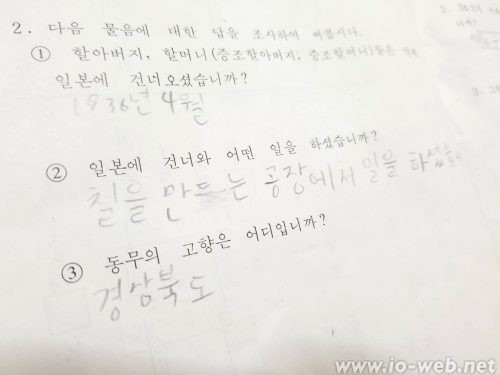 2. 다음 물음에 대한 답을 조사하여 써봅시다.
① 할아버지, 할머니(증조할아버지, 증조할머니)들은 언제
일본에 건너오셨습니까?
1936년 4월
② 일본에 건너와 어떤 일을 하셨습니까?
철을 만드는 공장에서 일을
③ 동무의 고향은 어디입니까?
경상북도
www.io-web.net